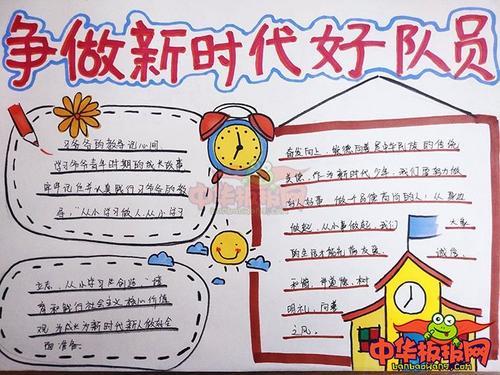 争做新时代好队员
习爷爷的教导记心间
学习爷爷青年时期的成长故事
牢牢记住并认真践行习爷爷的教
导,“从小学习做人、从小学习
立志、从小学习共创造”,培
育和践行社会主义核心价值
观,为成长为新时代新人做好全
面准备。
奋发向上,崇德向善是中华民族的传统
美德,作为新时代少年,我们要努力做
好人好事,做一个品德高尚的人,从身边
做起,从小事做起,我们
大事
的生活才能充满友爱、
诚信、
和谐,讲道德、树
明礼、
之风。
中华板报网
中华板报网
banbaowang.com